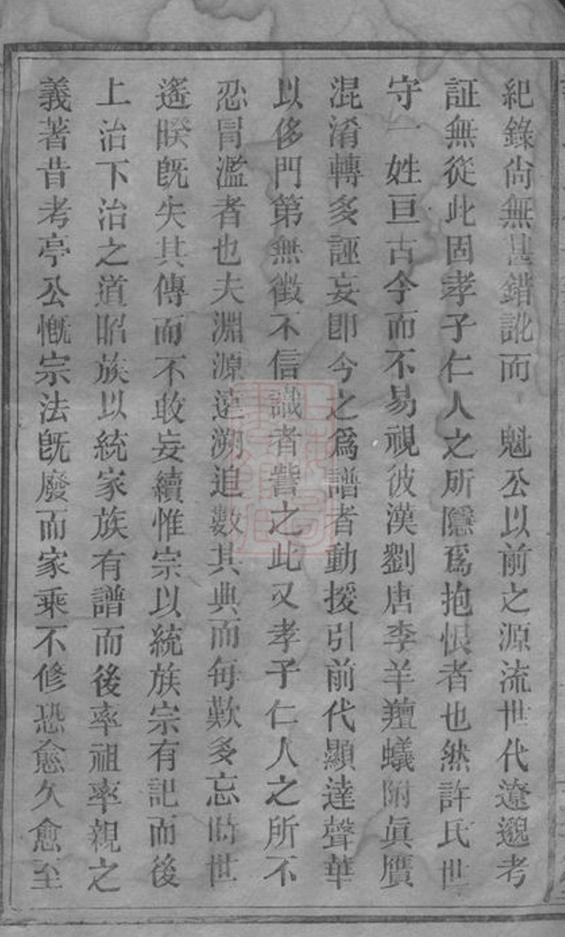 紀錄尚無甚錯訛而 魁公以前之源流世代遼邈考
証無從此固孝子仁人之所隱爲抱恨者也然許氏世
守一姓亘古今而不易視彼漢劉唐李羊羶蟻附眞贋
混淆轉多誣妄卽今之爲譜者動援引前代顯達聲華
以侈門第無徵不信識者訾之此又孝子仁人之所不
忍冐濫者也夫淵源遠溯追數其典而每歎多忘時世
遙暌旣失其傳而不敢妄續惟宗以統族宗有記而後
上治下治之道昭族以統家族有譜而後率祖率親之
義著昔考亭公慨宗法旣廢而家乘不修恐愈久愈至